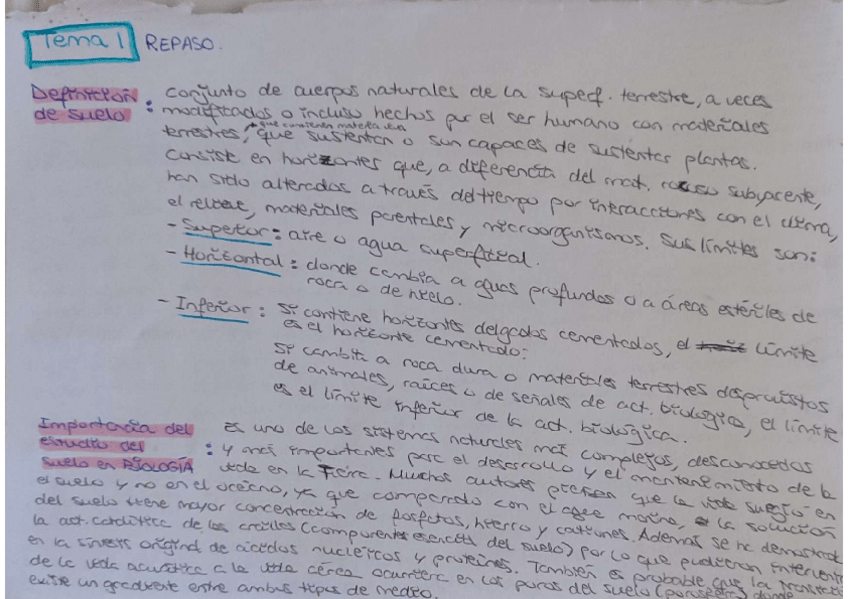 Tema 1 REPASO.
Definición de suelo: conjunto de cuerpos naturales de la superf. terrestre, a veces
modificados o incluso hechos por el ser humano con materiales
terrestres, que contienen materia viva que sustentan o sun capaces de sustentar plantas.
Consiste en horizontes que, a diferencia del mat. rocoso subyacente,
han sido alterados a través del tiempo por interacciones con el clima,
el relieve, materiales parentales y microorganismos. Sus límites son:
- Superior: aire o agua superficial.
- Horizontal: donde cambia a aguas profundas o a áreas estériles de
roca o de hielo.
- Inferior: Si contiene horizontes delgados cementados, el límite
es el horizonte cementado:
Si cambia a roca dura o materiales terrestres desprovistos
de animales, raíces o de señales de act. biológica, el límite
es el límite inferior de la act. biológica.
Importancia del estudio del suelo en BIOLOGÍA: es uno de los sistemas naturales más complejos, desconocidos
y más importantes para el desarrollo y el mantenimiento de la
vida en la Tierra. Muchos autores piensan que la vida surgió en
el suelo y no en el océano, ya que comparado con el agua marina, la solución
del suelo tiene mayor concentración de fosfatos, hierro y cationes. Además se ha demostrado
la act. catalítica de las arcillas (componente esencial del suelo) por lo que pudieron intervenir
en la síntesis original de ácidos nucleicos y proteínas. También es probable que la transición
de la vida acuática a la vida aérea ocurriera en los poros del suelo donde
existe un gradiente entre ambos tipos de medio.